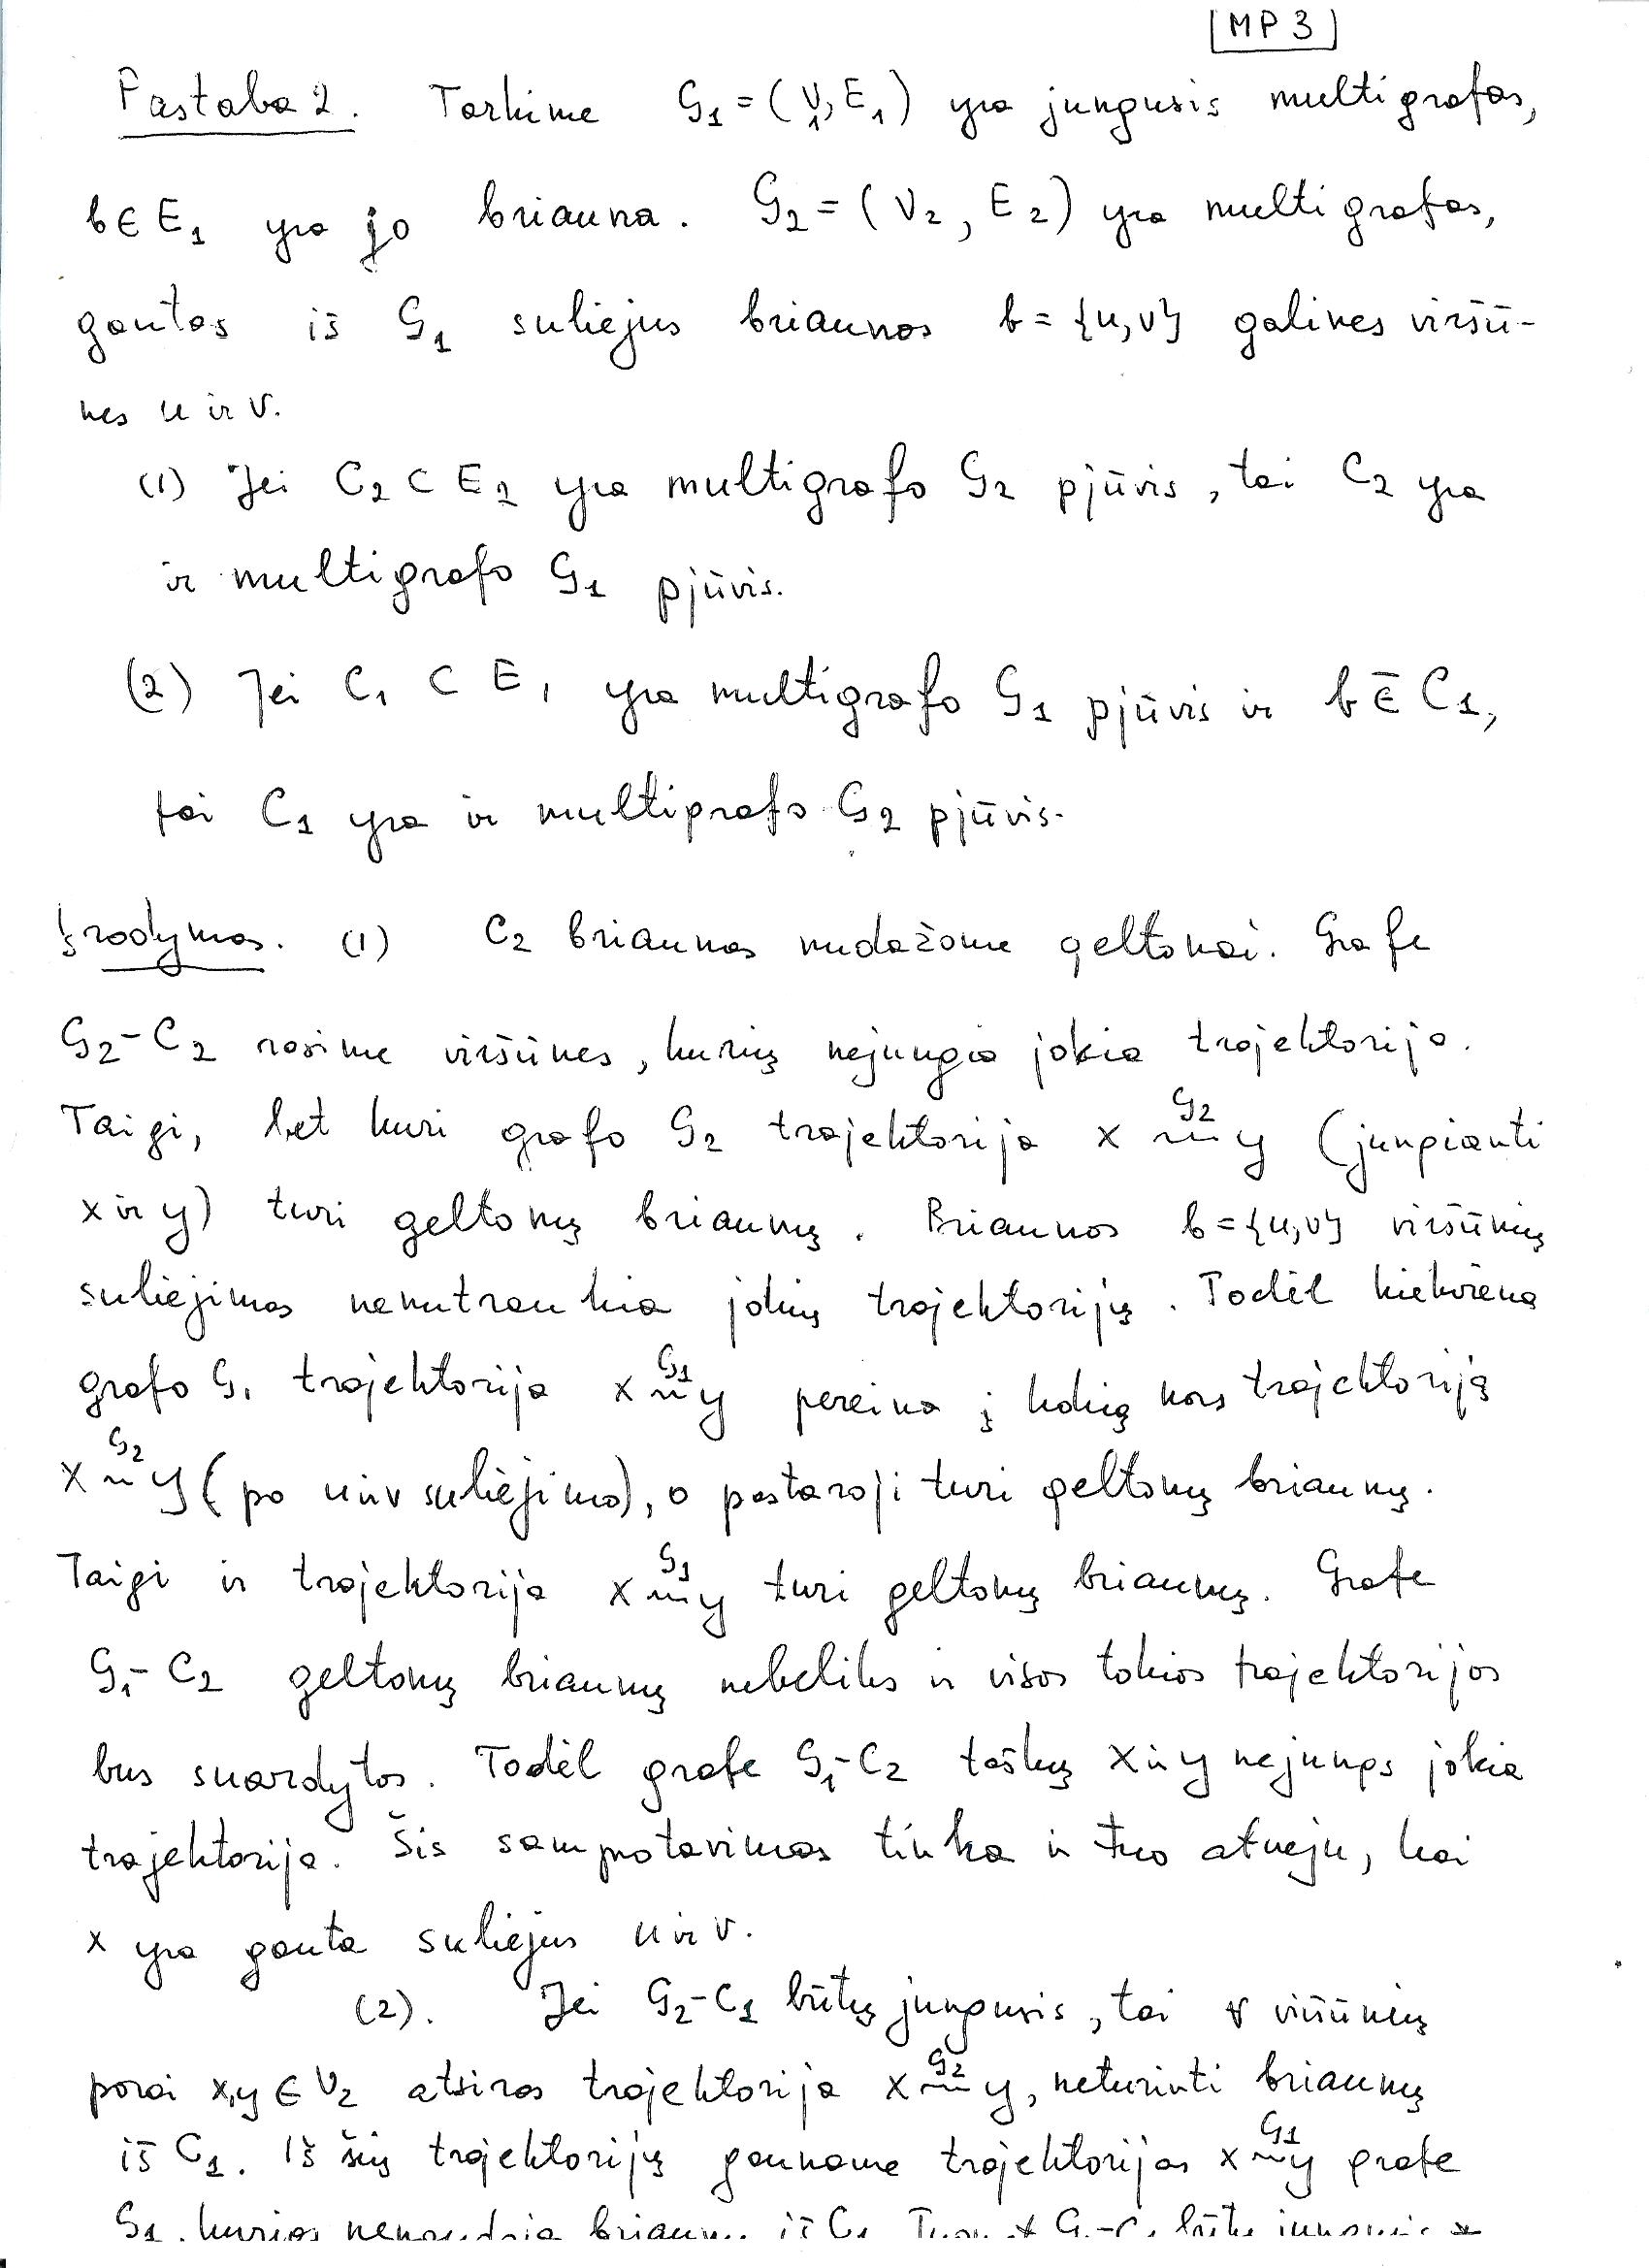 [MP 3]
Pastaba 2. Tarkime G₁ = (V₁, E₁) yra jungusis multigrafas,
b ∈ E₁ yra jo briauna. G₂ = (V₂, E₂) yra multigrafas,
gautas iš G₁ suliejus briaunos b = {u,v} galines viršū-
nes u ir v.
(1) Jei C₂ ⊂ E₂ yra multigrafo G₂ pjūvis, tai C₂ yra
ir multigrafo G₁ pjūvis.
(2) Jei C₁ ⊂ E₁ yra multigrafo G₁ pjūvis ir b ∉ C₁,
tai C₁ yra ir multigrafo G₂ pjūvis.
Įrodymas. (1) C₂ briaunas nudažome geltonai. Grafe
G₂-C₂ rasime viršūnes, kurių nejungia jokia trajektorija.
Taigi, bet kuri grafo G₂ trajektorija x ~^G₂ y (jungianti
x ir y) turi geltonų briaunų. Briaunos b = {u,v} viršūnių
suliejimas nenutraukia jokių trajektorijų. Todėl kiekviena
grafo G₁ trajektorija x ~^G₁ y pereina į kokią nors trajektoriją
x ~^G₂ y (po u ir v suliejimo), o pastaroji turi geltonų briaunų.
Taigi ir trajektorija x ~^G₁ y turi geltonų briaunų. Grafe
G₁-C₂ geltonų briaunų nebeliks ir visos tokios trajektorijos
bus suardytos. Todėl grafe G₁-C₂ taškų x ir y nejungs jokia
trajektorija. Šis samprotavimas tinka ir tuo atveju, kai
x yra gauta suliejus u ir v.
(2). Jei G₂-C₁ būtų jungusis, tai ∀ viršūnių
porai x,y ∈ V₂ atsiras trajektorija x ~^G₂ y, neturinti briaunų
iš C₁. Iš šių trajektorijų gauname trajektorijas x ~^G₁ y grafe
G₁, kurios nenaudoja briaunų iš C₁. G₁-C₁ būtų jungusis